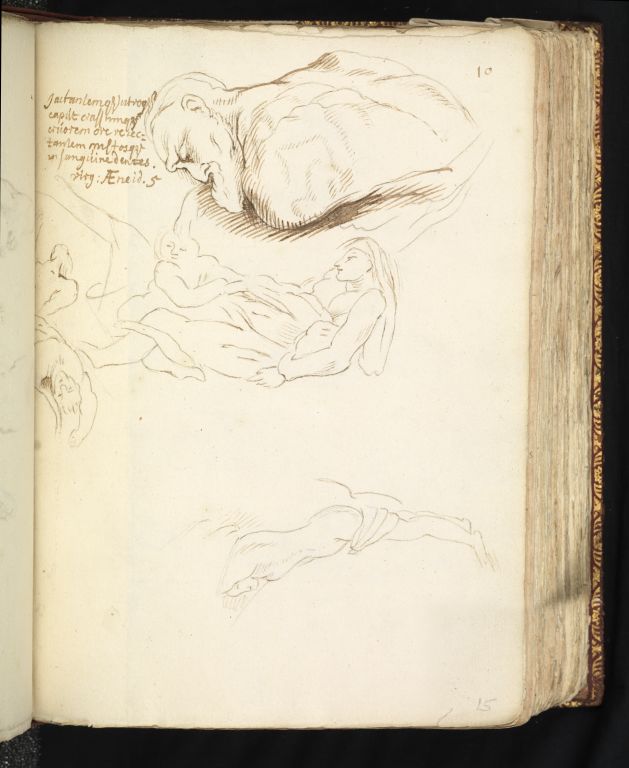 Iactantemqȝ utroqȝ
caput crassumqȝ
cruorem ore rejec-
tantem mistosqȝ
in sanguine dentes.
virg: Æneid. 5
10
15